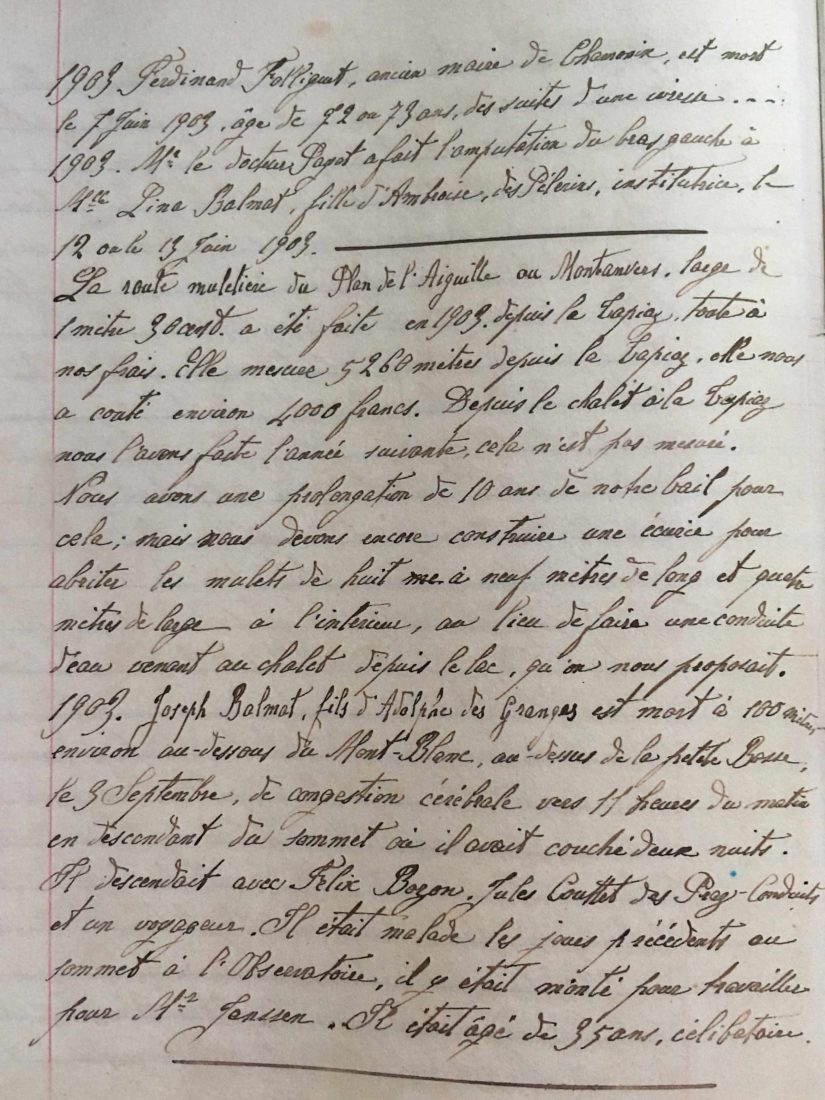 1903 Ferdinand Folliguet, ancien maire de Chamonix, est mort
le 7 Juin 1903, âge de 72 ou 73 ans, des suites d'une ivresse . - -
1903. Mr le docteur Payot a fait l'amputation du bras gauche à
Mlle Lina Balmat, fille d'Ambroise, des Pélerins, institutrice, le
12 ou le 13 Juin 1903.
La route muletière du Plan de l'Aiguille au Montanvers, large de
1 mètre 30 cent. a été faite en 1903, depuis la Tapiaz, toute à
nos frais. Elle mesure 5260 mètres depuis la Tapiaz, elle nous
a couté environ 4000 francs. Depuis le chalet à la Tapiaz
nous l'avons faite l'année suivante, cela n'est pas mesuré.
Nous avons une prolongation de 10 ans de notre bail pour
cela; mais nous devons encore construire une écurie pour
abriter les mulets de huit me à neuf mètres de long et quatre
mètres de large à l'intérieur, au lieu de faire une conduite
d'eau venant au chalet depuis le lac, qu'on nous proposait.
1903. Joseph Balmat, fils d'Adolphe des Granges est mort à 100 mètres
environ au-dessous du Mont-Blanc, au-dessus de la petite Bosse,
le 3 Septembre, de congestion cérébrale vers 11 heures du matin
en descendant du sommet où il avait couché deux nuits.
Il descendait avec Félix Bozon, Jules Couttet des Praz-Conduits
et un voyageur. Il était malade les jours précédents au
sommet à l'Observatoire, il y était monté pour travailler
pour Mr Janssen. Il était âgé de 35 ans, célibataire.